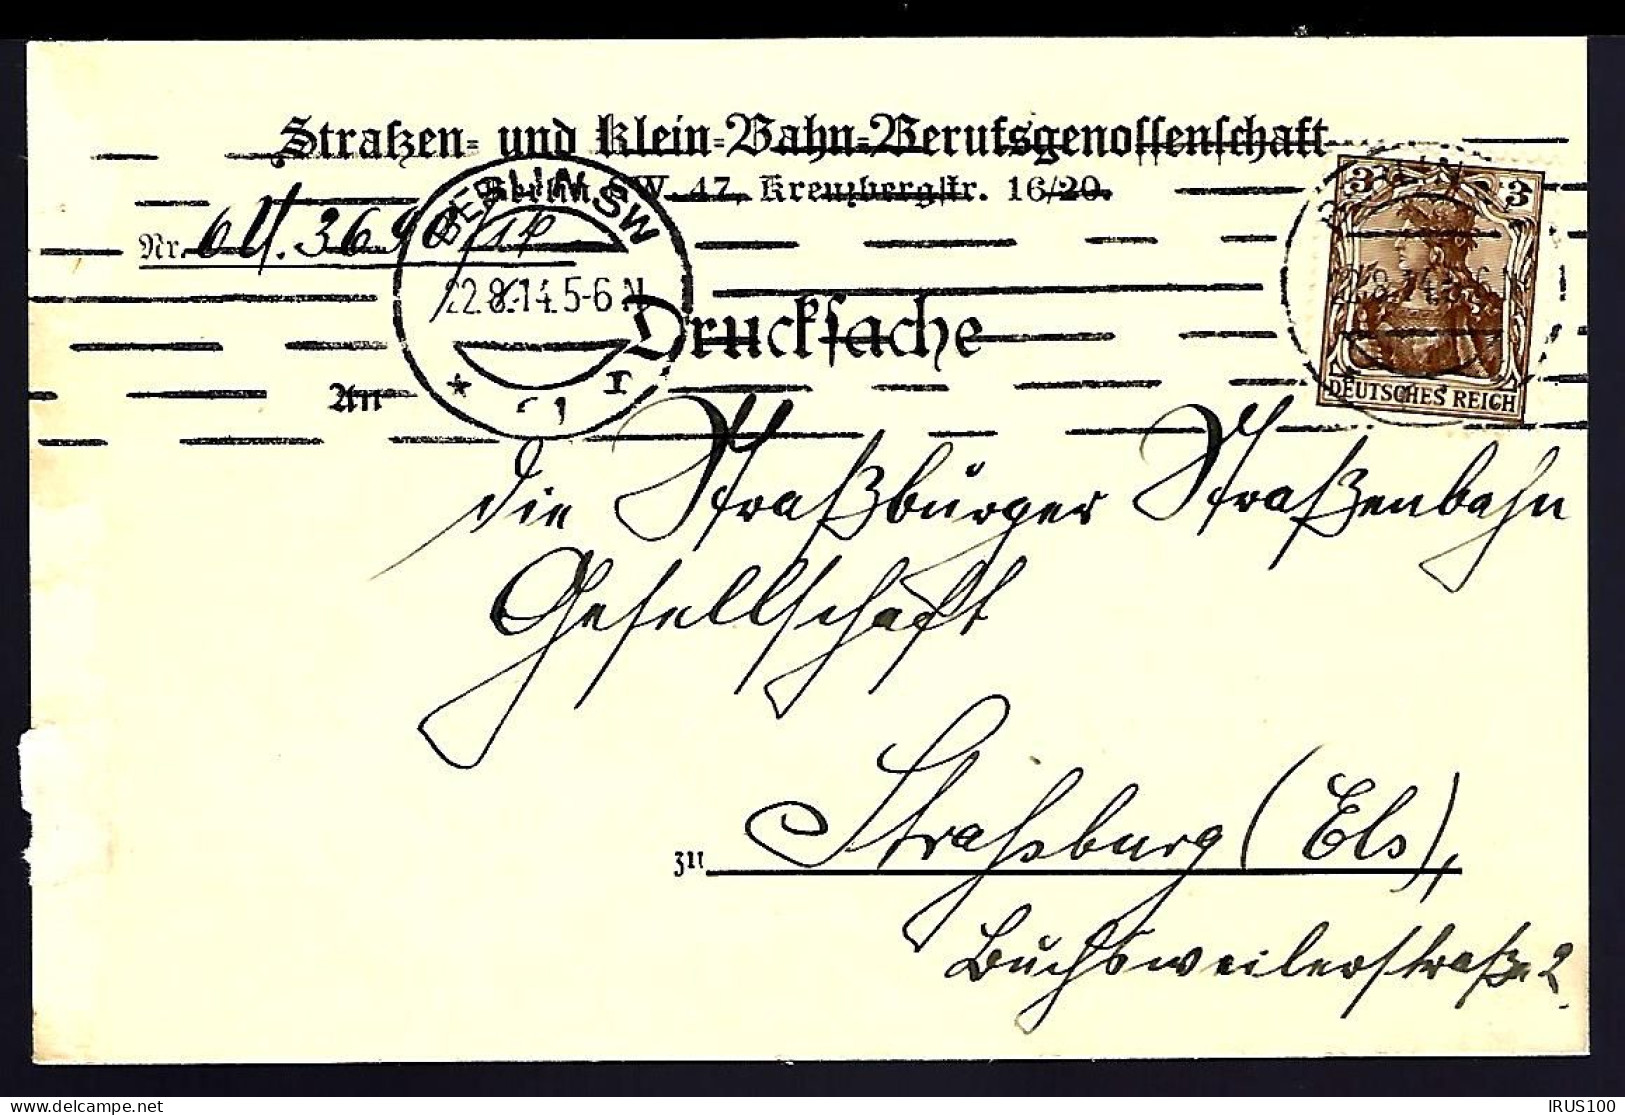 Straßen- und Klein-Bahn-Berufsgenossenschaft
Berlin SW. 47, Kreuzbergstr. 16/20.
Nr.
BERLIN SW
22.8.14.5-6 N
* 1 r
Drucksache
An
3 3
BERLIN
22.8.14.5-6 N
DEUTSCHES REICH
die Straßburger Straßenbahn
Gesellschaft
zu Strassburg (Els),
Buchsweilerstraße 2
IRUS100